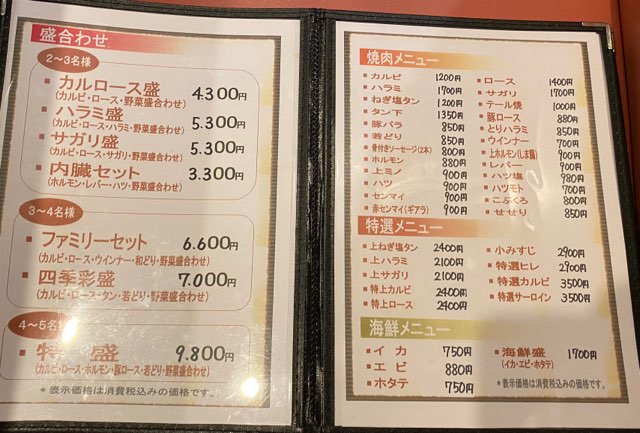 盛合わせ
2〜3名様
カルロース盛 4.300円
(カルビ・ロース・野菜盛合わせ)
ハラミ盛 5.300円
(カルビ・ロース・ハラミ・野菜盛合わせ)
サガリ盛 5.300円
(カルビ・ロース・サガリ・野菜盛合わせ)
内臓セット 3.300円
(ホルモン・レバー・ハツ・野菜盛合わせ)
3〜4名様
ファミリーセット 6.600円
(カルビ・ロース・ウインナー・和どり・野菜盛合わせ)
四季彩盛 7.000円
(カルビ・ロース・タン・若どり・野菜盛合わせ)
4〜5名様
特 盛 9.800円
(カルビ・ロース・ホルモン・豚ロース・若どり・野菜盛合わせ)
*表示価格は消費税込みの価格です。
焼肉メニュー
カルビ 1200円
ハラミ 1700円
ねぎ塩タン 1200円
タン下 1350円
豚バラ 850円
若どり 850円
骨付きソーセージ(2本) 800円
ホルモン 880円
上ミノ 900円
ハツ 900円
センマイ 900円
赤センマイ(ギアラ) 900円
ロース 1400円
サガリ 1700円
テール焼 1000円
豚ロース 880円
とりハラミ 850円
ウインナー 700円
上ホルモン(しま腸) 900円
レバー 900円
ハツ塩 980円
ハツモト 700円
こぶくろ 800円
せせり 850円
特選メニュー
上ねぎ塩タン 2400円
上ハラミ 2100円
上サガリ 2100円
特上カルビ 2400円
特上ロース 2400円
小みすじ 2900円
特選ヒレ 2900円
特選カルビ 3500円
特選サーロイン 3500円
海鮮メニュー
イカ 750円
エビ 880円
ホタテ 750円
海鮮盛 1700円
(イカ・エビ・ホタテ)
*表示価格は消費税込みの価格です。